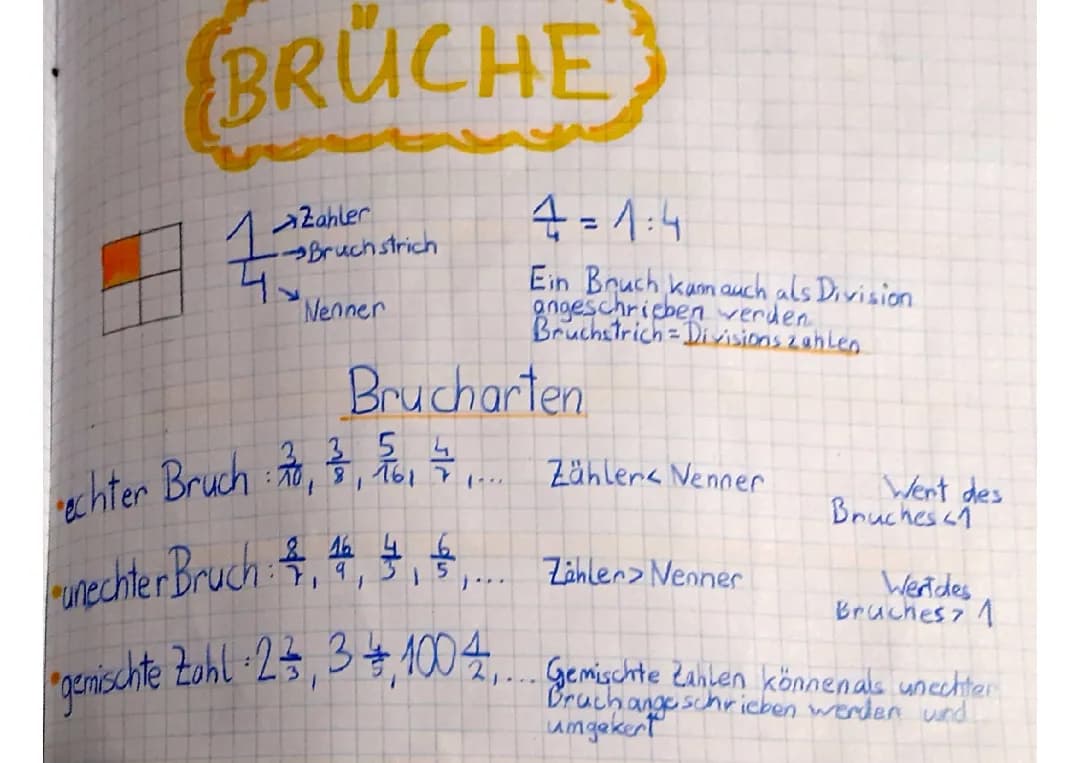 BRÜCHE
1/4 →Zahler
→Bruchstrich
Nenner
1/4 = 1:4
Ein Bruch kann auch als Division
angeschrieben werden
Bruchstrich = Divisionszahlen
Brucharten
•echter Bruch : 3/10, 3/8, 5/16, 4/7, ... Zähler< Nenner Wert des
Bruches <1
•unechter Bruch : 8/7, 16/9, 4/3, 6/5, ... Zähler> Nenner Wert des
Bruches > 1
•gemischte Zahl : 2 2/3, 3 4/5, 100 1/2, ... Gemischte Zahlen können als unechter
Bruch angeschrieben werden und
umgekert